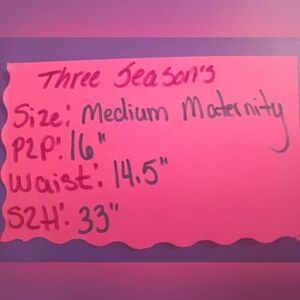 Three Season's
Size: Medium Maternity
P2P: 16"
Waist: 14.5"
S2H: 33"